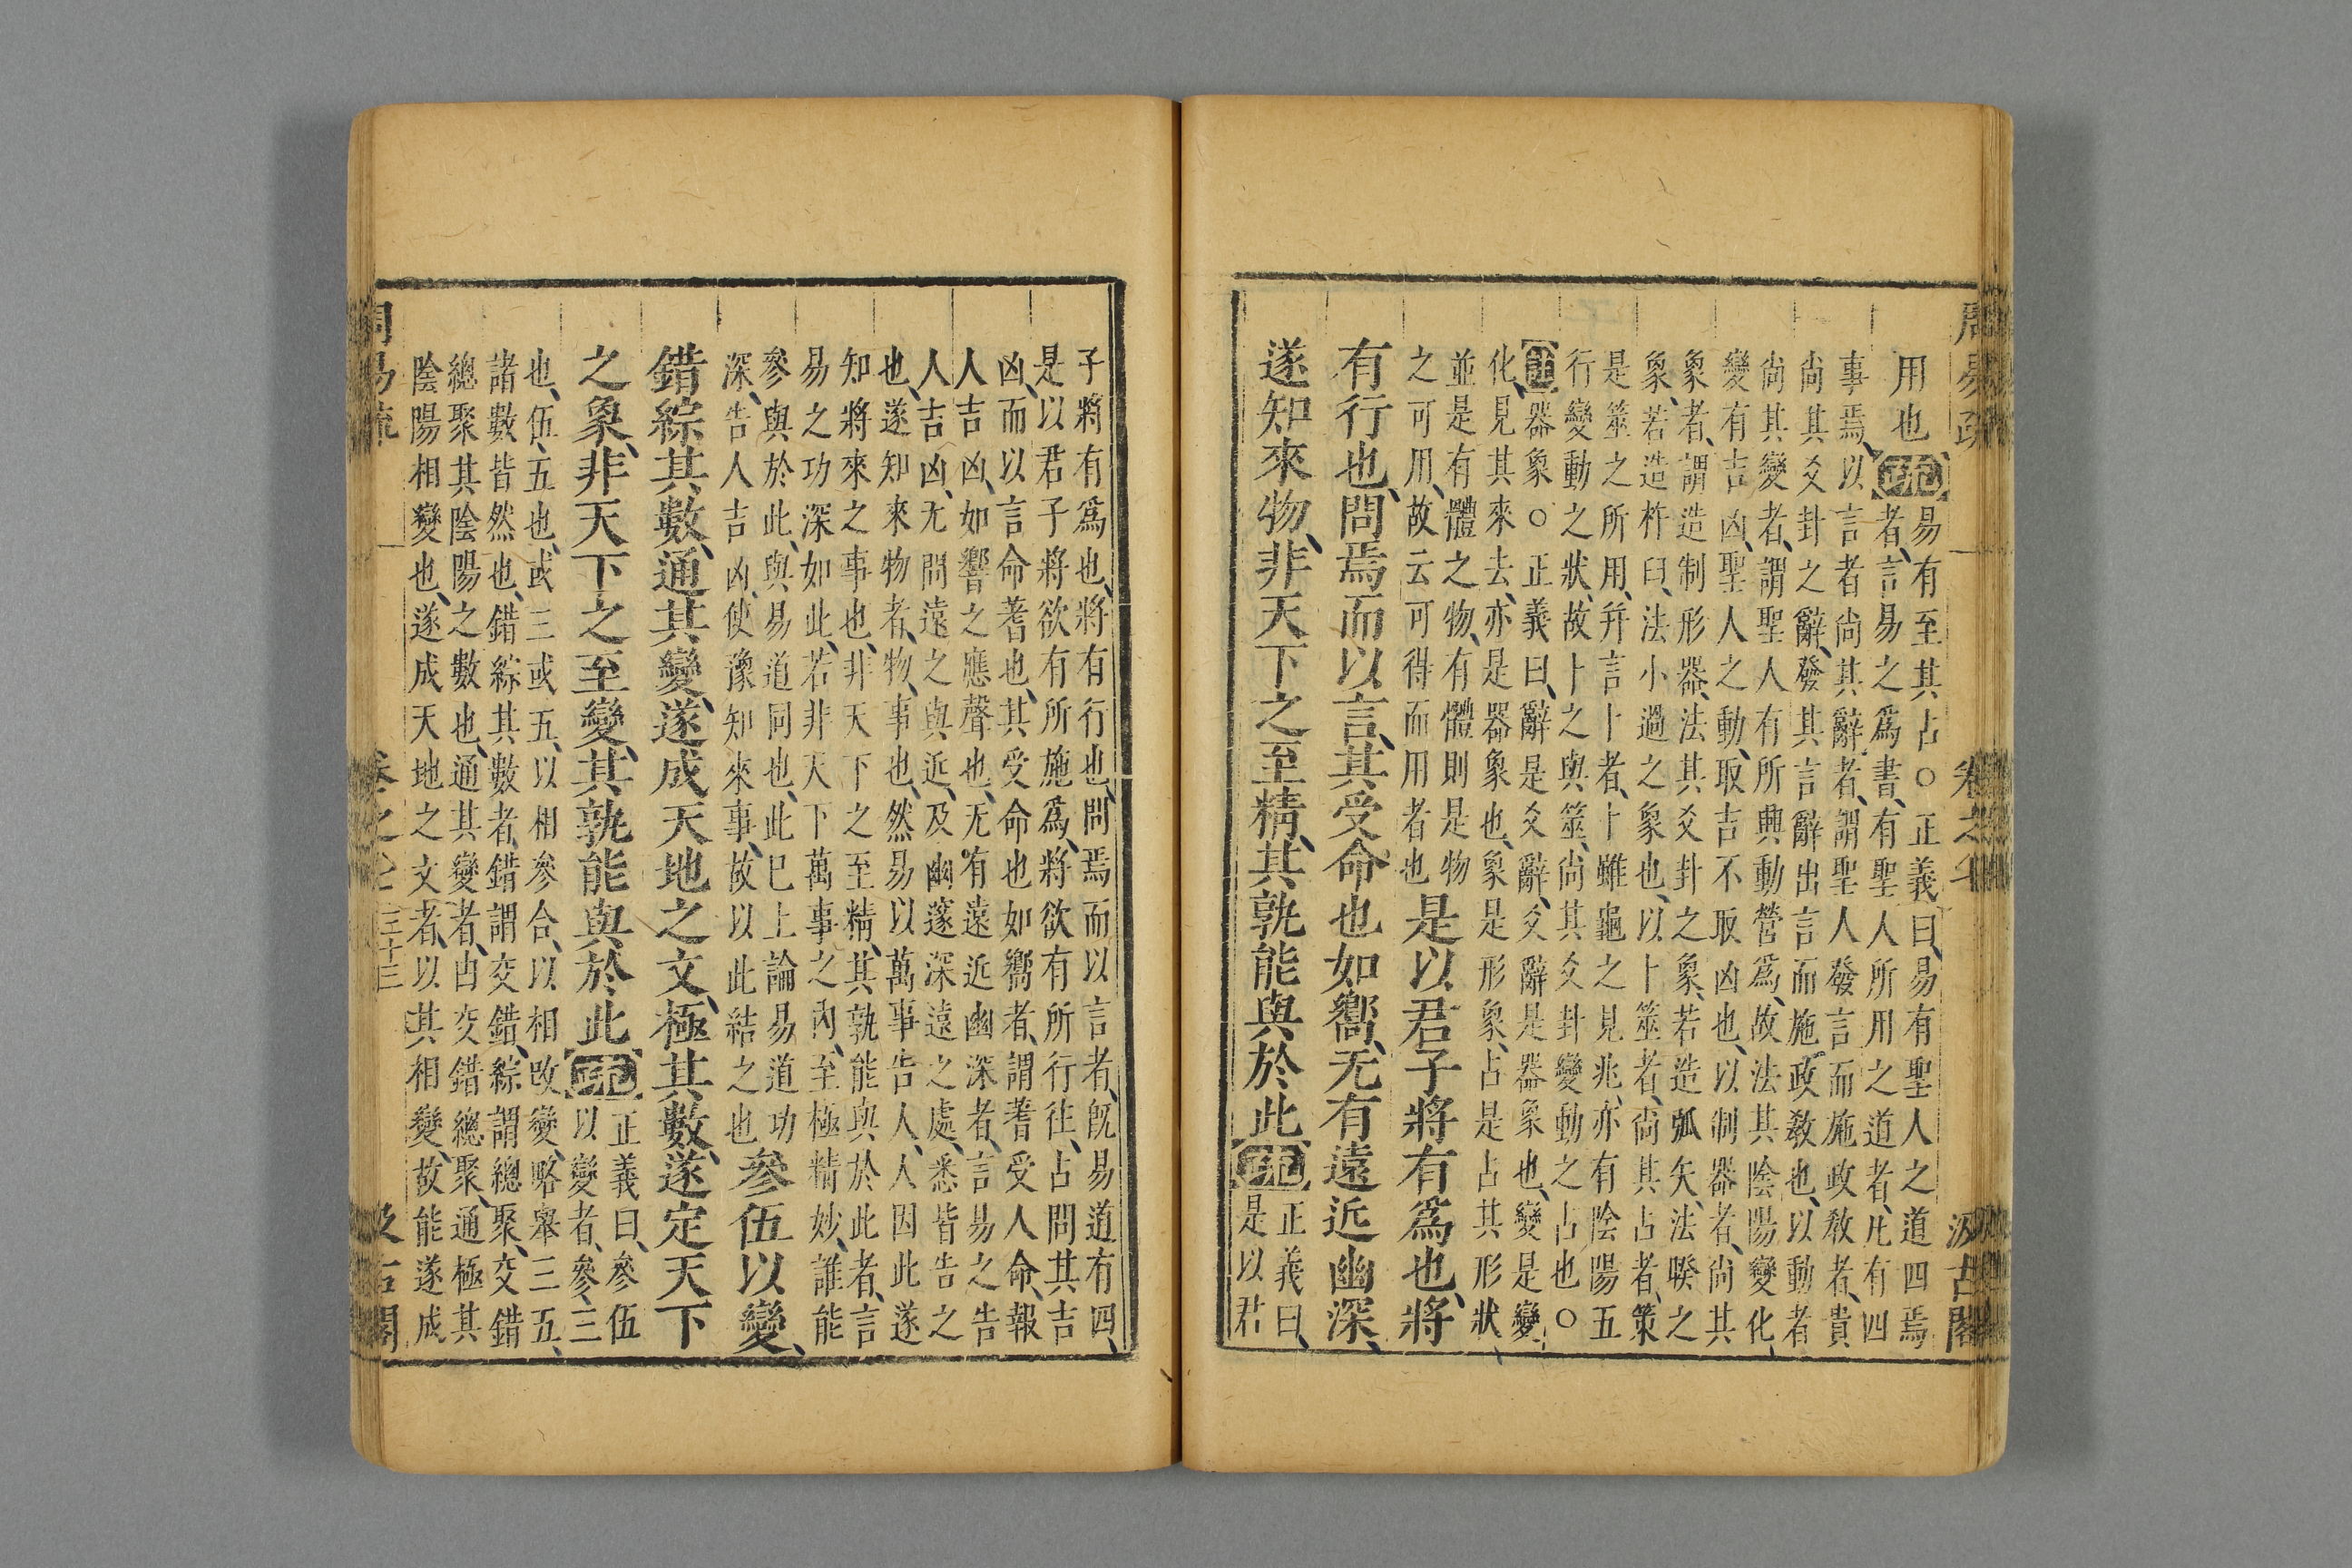 周易疏 卷之七 汲古閣
用也疏易有至其占○正義曰易有聖人之道四焉
者言易之爲書有聖人所用之道者凡有四
事焉以言者尚其辭者謂聖人發言而施政教者貴
尚其爻卦之辭發其言辭出言而施政教也以動者
尚其變者謂聖人有所興動營爲故法其陰陽變化
變有吉凶聖人之動取吉不取凶也以制器者尚其
象者謂造制形器法其爻卦之象若造弧矢法睽之
象若造杵臼法小過之象也以卜筮者尚其占者策
是筮之所用幷言卜者卜雖龜之見兆亦有陰陽五
行變動之狀故卜之與筮尚其爻卦變動之占也○
注器象○正義曰辭是爻辭爻辭是器象也變是變
化見其來去亦是器象也象是形象占是占其形狀
並是有體之物有體則是物
之可用故云可得而用者也
是以君子將有爲也將
有行也問焉而以言其受命也如嚮无有遠近幽深
遂知來物非天下之至精其孰能與於此疏正義曰
是以君
子將有爲也將有行也問焉而以言者旣易道有四
是以君子將欲有所施爲將欲有所行往占問其吉
凶而以言命蓍也其受命也如嚮者謂蓍受人命報
人吉凶如響之應聲也无有遠近幽深者言易之告
人吉凶无問遠之與近及幽邃深遠之處悉皆告之
也遂知來物者物事也然易以萬事告人人因此遂
知將來之事也非天下之至精其孰能與於此者言
易之功深如此若非天下萬事之內至極精妙誰能
參與於此與易道同也此已上論易道功
深告人吉凶使豫知來事故以此結之也
參伍以變
錯綜其數通其變遂成天地之文極其數遂定天下
之象非天下之至變其孰能與於此疏正義曰參伍
以變者參三
也伍五也或三或五以相參合以相改變略舉三五
諸數皆然也錯綜其數者錯謂交錯綜謂總聚交錯
總聚其陰陽之數也通其變者由交錯總聚通極其
陰陽相變也遂成天地之文者以其相變故能遂成
周易疏 卷之七 三十三 汲古閣